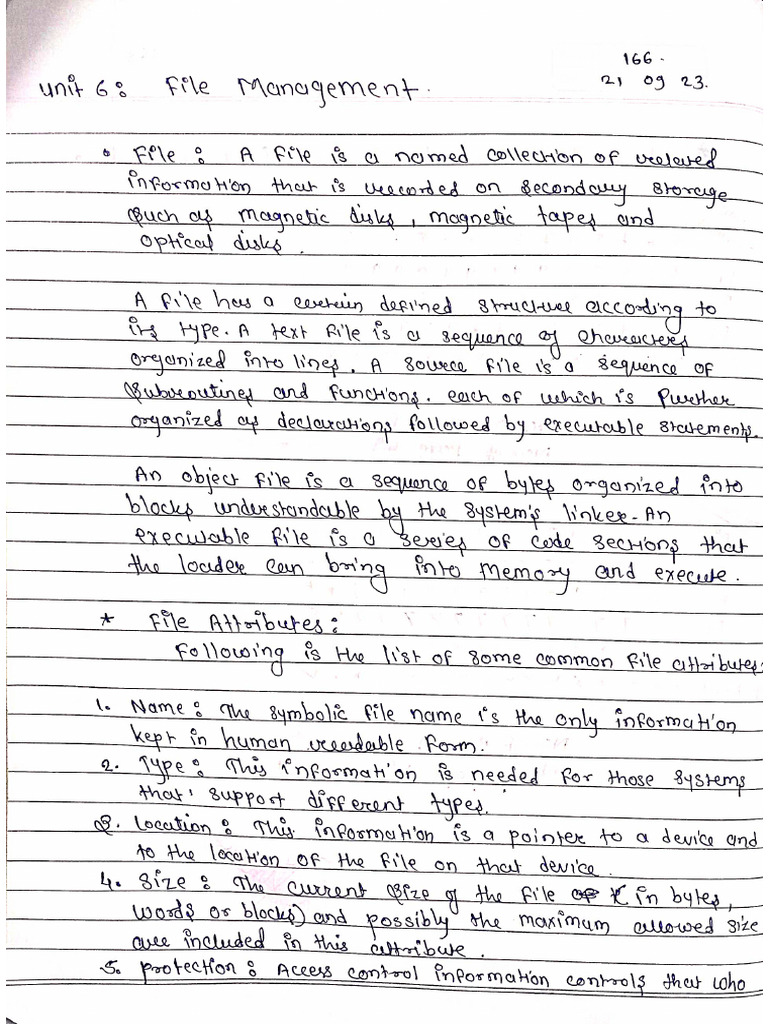 166.
21 09 23.
Unit 6: File Management.
• File: A file is a named collection of related
information that is recorded on secondary storage
such as magnetic disks, magnetic tapes and
optical disks.
A file has a certain defined structure according to
its type. A text file is a sequence of characters
organized into lines. A source file is a sequence of
subroutines and functions. each of which is further
organized as declarations followed by executable statements.
An object file is a sequence of bytes organized into
blocks understandable by the system's linker. An
executable file is a series of code sections that
the loader can bring into memory and execute.
* File Attributes:
Following is the list of some common file attributes:
1. Name: The symbolic file name is the only information
kept in human readable form.
2. Type: This information is needed for those systems
that support different types.
3. Location: This information is a pointer to a device and
to the location of the file on that device.
4. Size: The current size of the file (in bytes,
words or blocks) and possibly the maximum allowed size
are included in this attribute.
5. Protection: Access control information controls that who